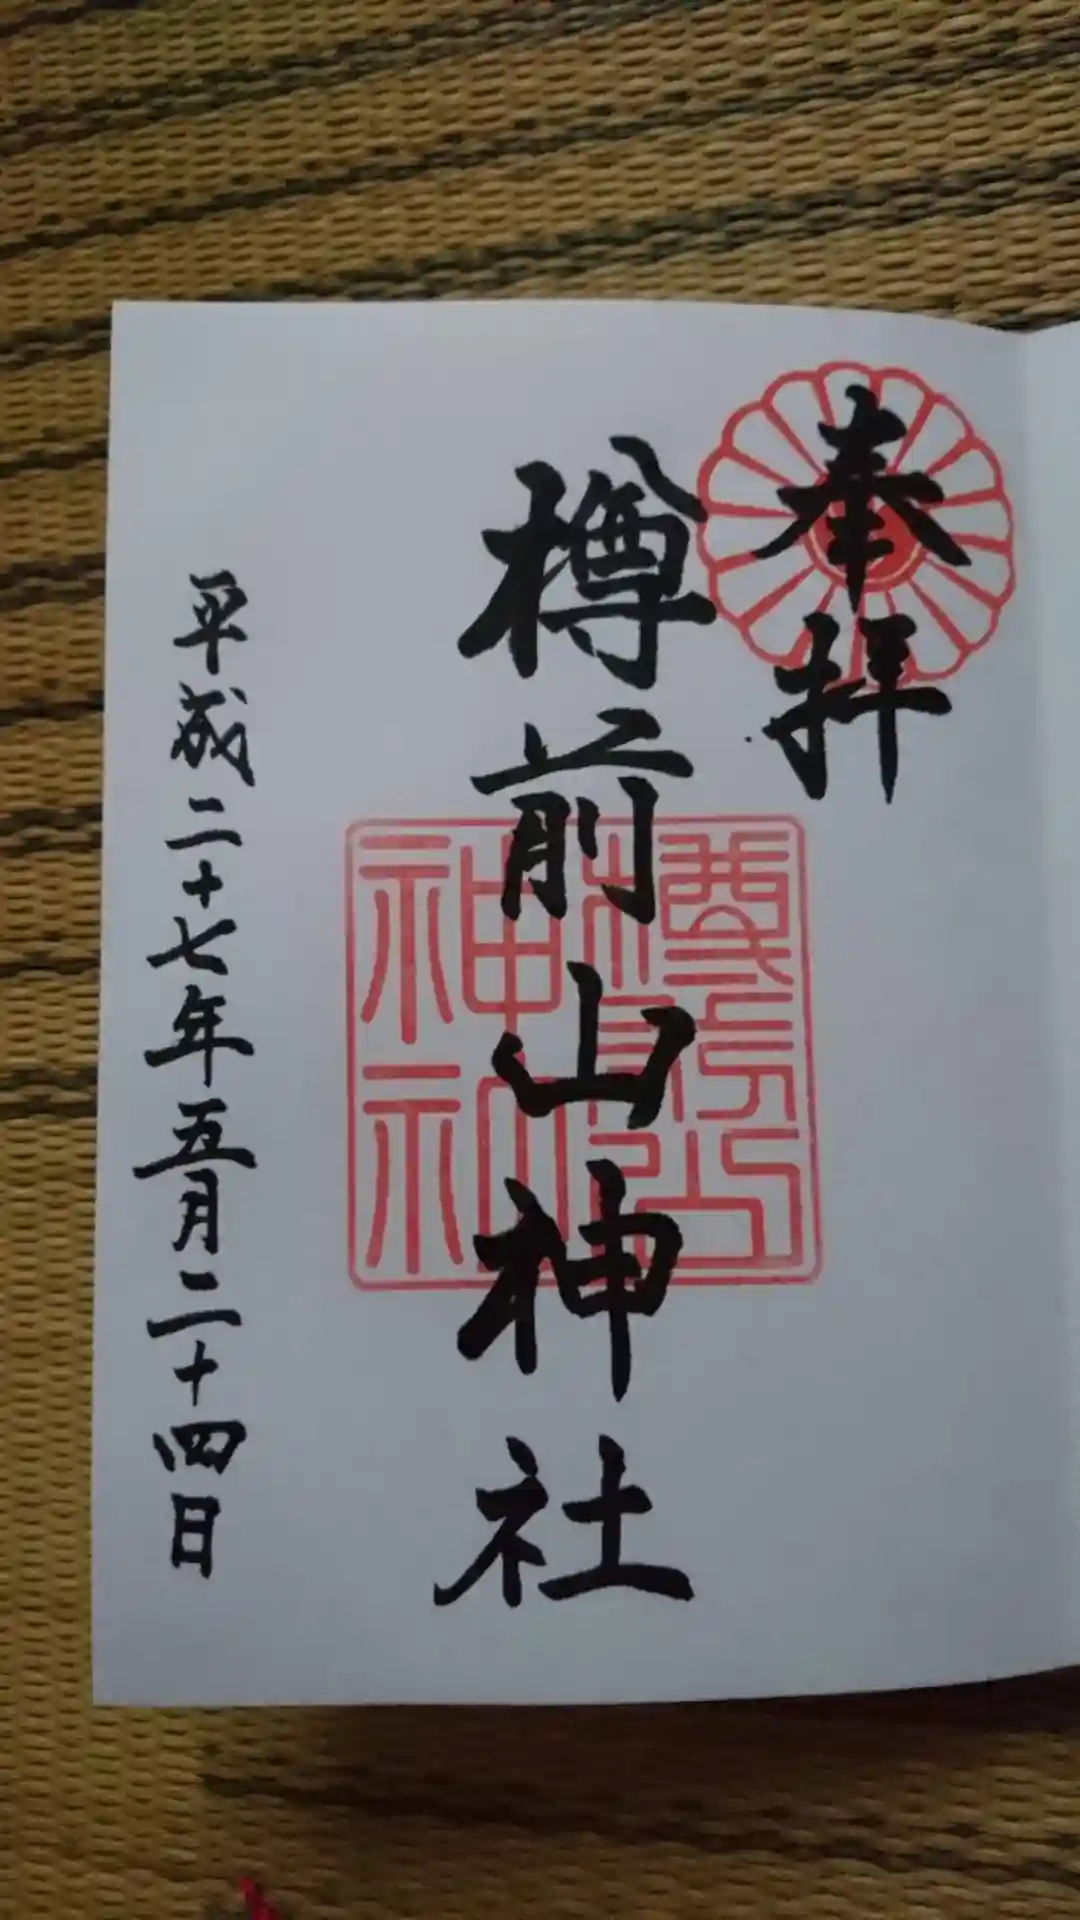 奉拝
樽前山神社
樽前山
神社
平成二十七年五月二十四日